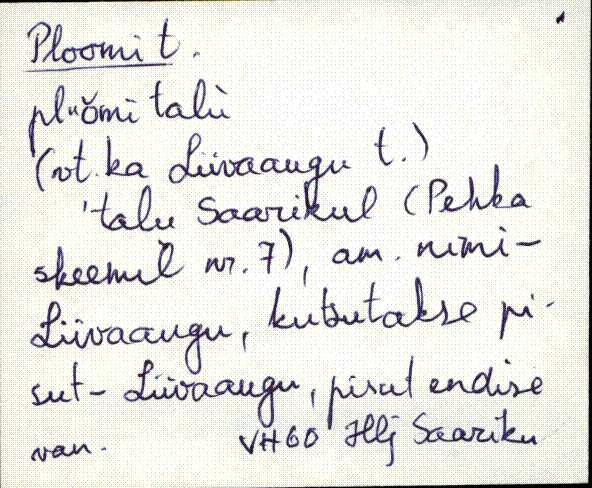 Ploomi t.
plᵘŏmi talù
(vt. ka Liivaaugu t.)
'talu Saarikul (Pehka
skeemil nr. 7), am. nimi-
Liivaaugu, kutsutakse pi-
sut- Liivaaugu, pisut endise
van. VH60 Hlj Saariku